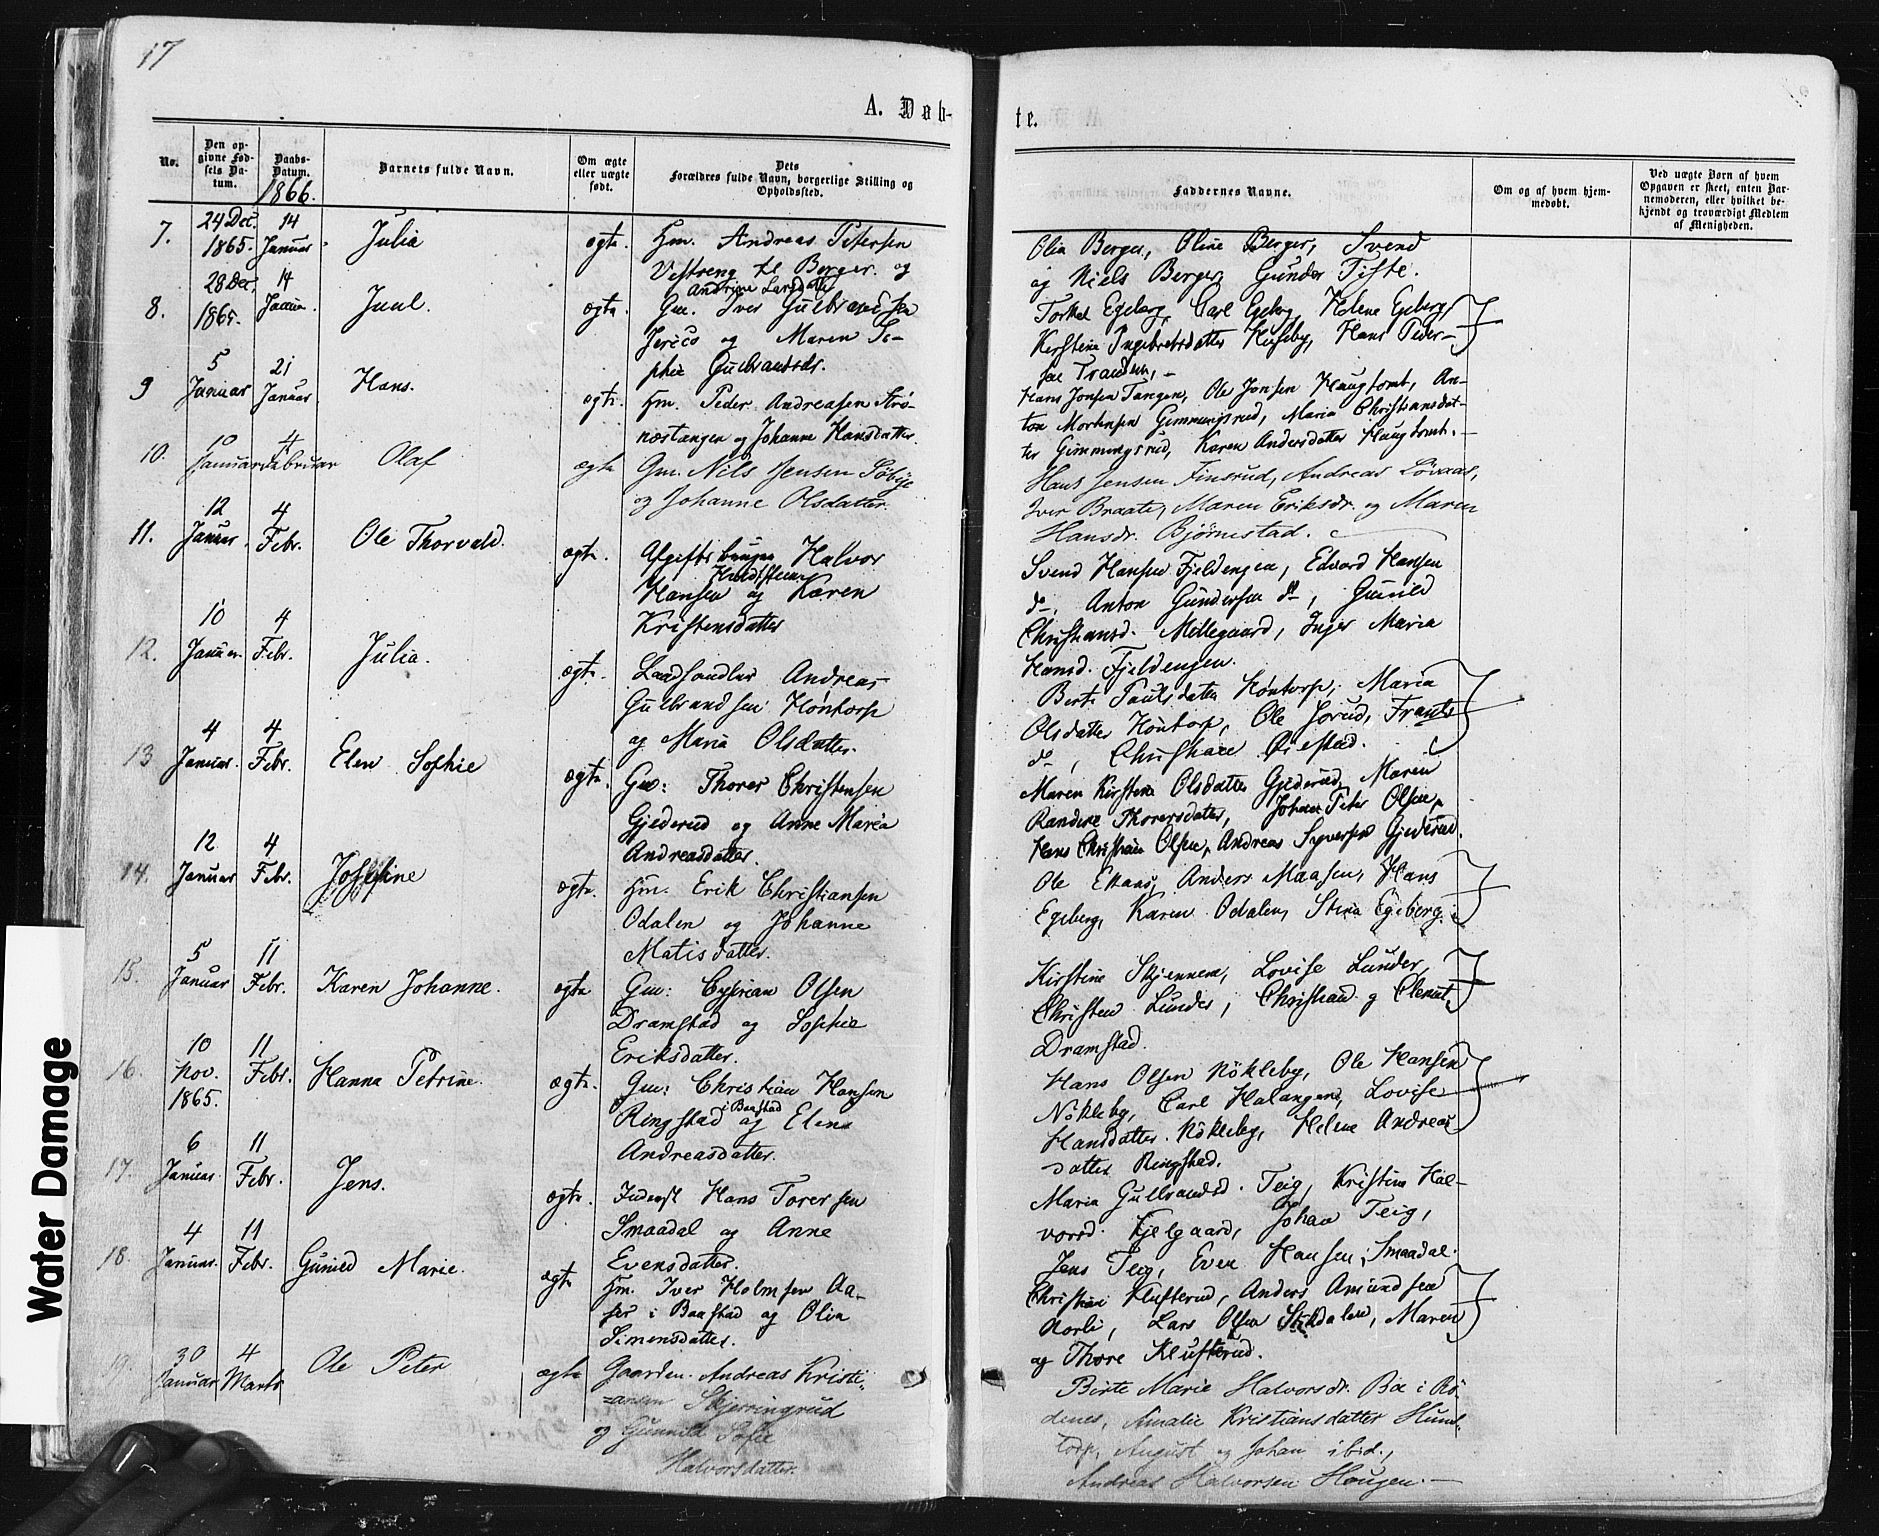 17
A. Døb-
te.
No.
Den op-
givne Fød-
sels Da-
tum.
Daabs-
Datum.
1866.
Barnets fulde Navn.
Om ægte
eller uægte
født.
Dets
Forældres fulde Navn, borgerlige Stilling og
Opholdssted.
Faddernes Navne.
Om og af hvem hjem-
medøbt.
Ved uægte Børn af hvem
Opgaven er skeet, enten Bar-
nemoderen, eller hvilket be-
kjendt og troværdigt Medlem
af Menigheden.
7.
24 Dec.
1865.
14
Januar
Julia
ægte.
Hm. Andreas Petersen
Vestreng til Berger og
Andrine Larsdatter
Olia Berger, Oline Berger, Svend
og Niels Berger, Gunder Tiste.
8.
28 Dec.
1865.
14
Januar
Juul.
ægte
Gm. Iver Gulbrandsen
Jerico og Maren So-
phie Gulbrandsdr.
Torkel Egeberg, Carl Egeberg, Helene Egeberg,
Kirstine Ingebretsdatter Huseby, Hans Peder-
sen Tranden,
9
5
Januar
21
Januar
Hans.
ægte.
Hm. Peder Andreasen Strø-
næstangen og Johanne Hansdatter
Hans Jonsen Tangen, Ole Jonsen Haugtomt, An-
ton Mortensen Gimmingsrud, Maria Christiansdat-
ter Gimmingsrud, Karen Andersdatter Haugtomt.
10.
10
Januar
4
Februar
Olaf
ægte
Gm. Nils Jensen Søbye
og Johanne Olsdatter
Hans Jensen Finsrud, Andreas Løvaas,
Iver Braate, Maren Eriksdr. og Maren
Hansdr. Bjørnestad.
11.
12
Januar
4
Febr.
Ole Thorvald.
ægte.
Afgiftsbruger Halvor
Hansen Hvidsteen og Karen
Kristensdatter
Svend Hansen Fjeldengen, Edvard Hansen
do, Anton Gundersen do, Gunild
Christiansd. Mellegaard, Inger Maria
Hansd. Fjeldengen.
12.
10
Januar.
4
Febr.
Julia.
ægte.
Landhandler Andreas
Gulbrandsen Høntorp
og Maria Olsdatter
Berte Paulsdatter Høntorp, Maria
Olsdatter Høntorp, Ole Jorud, Frants
do, Christiane Øiestad.
13
4
Januar.
4
Febr.
Elen Sophie
ægte.
Gm: Thorer Christensen
Gjederud og Anne Maria
Andreasdatter.
Maren Kirstine Olsdatter Gjederud, Maren
Randine Thorersdatter, Johan Peter Olsen,
Hans Christian Olsen, Andreas Syversen Gjederud.
14.
12
Januar
4
Febr.
Josefine
ægte.
Hm. Erik Christiansen
Odalen og Johanne
Matisdatter.
Ole Anders Maasen, Hans
Egeberg, Karen Odalen, Stina Egeberg.
15.
5
Januar
11
Febr.
Karen Johanne.
ægte
Gm: Cyprian Olsen
Dramstad og Sophie
Eriksdatter.
Kirstine Skjennem, Lovise Lunder,
Christen Lunder, Christian og Clemet
Dramstad.
16.
10
Nov.
1865.
11
Febr.
Hanna Petrine.
ægte.
Gm: Christian Hansen
Ringstad i Baastad og Elen
Andreasdatter.
Hans Olsen Nökleby, Ole Hansen
Nökleby, Carl Halangen, Lovise
Hansdatter Nökleby, Helene Andreas-
datter Ringstad.
17.
6
Januar.
11
Febr.
Jens.
ægte.
Inderst Hans Torersen
Smaadal og Anne
Evensdatter.
Maria Gulbrandsd. Teig, Kristine Hal-
vorsd. Kjelgaard, Johan Teig,
Jens Teig, Even Hansen Smaadal.
18.
4
Januar.
11
Febr.
Gunild Marie.
ægte
Hm. Iver Holmsen Aa-
ser i Baastad og Olia
Simensdatter.
Christian Klufterud, Anders Amundsen
Aarli, Lars Olsen Maren
og Thore Klufterud.
19.
30
Januar
4
Marts
Ole Peter
ægte
Gaardm. Andreas Kristi-
ansen Skjerringrud
og Gunnild Sofie
Halvorsdatter.
Birte Marie Halvorsdr. Bøe i Rø-
denes, Amalie Kristiansdatter Hun-
torp, August og Johan ibid.,
Andreas Halvorsen Haugen.
Water Damage